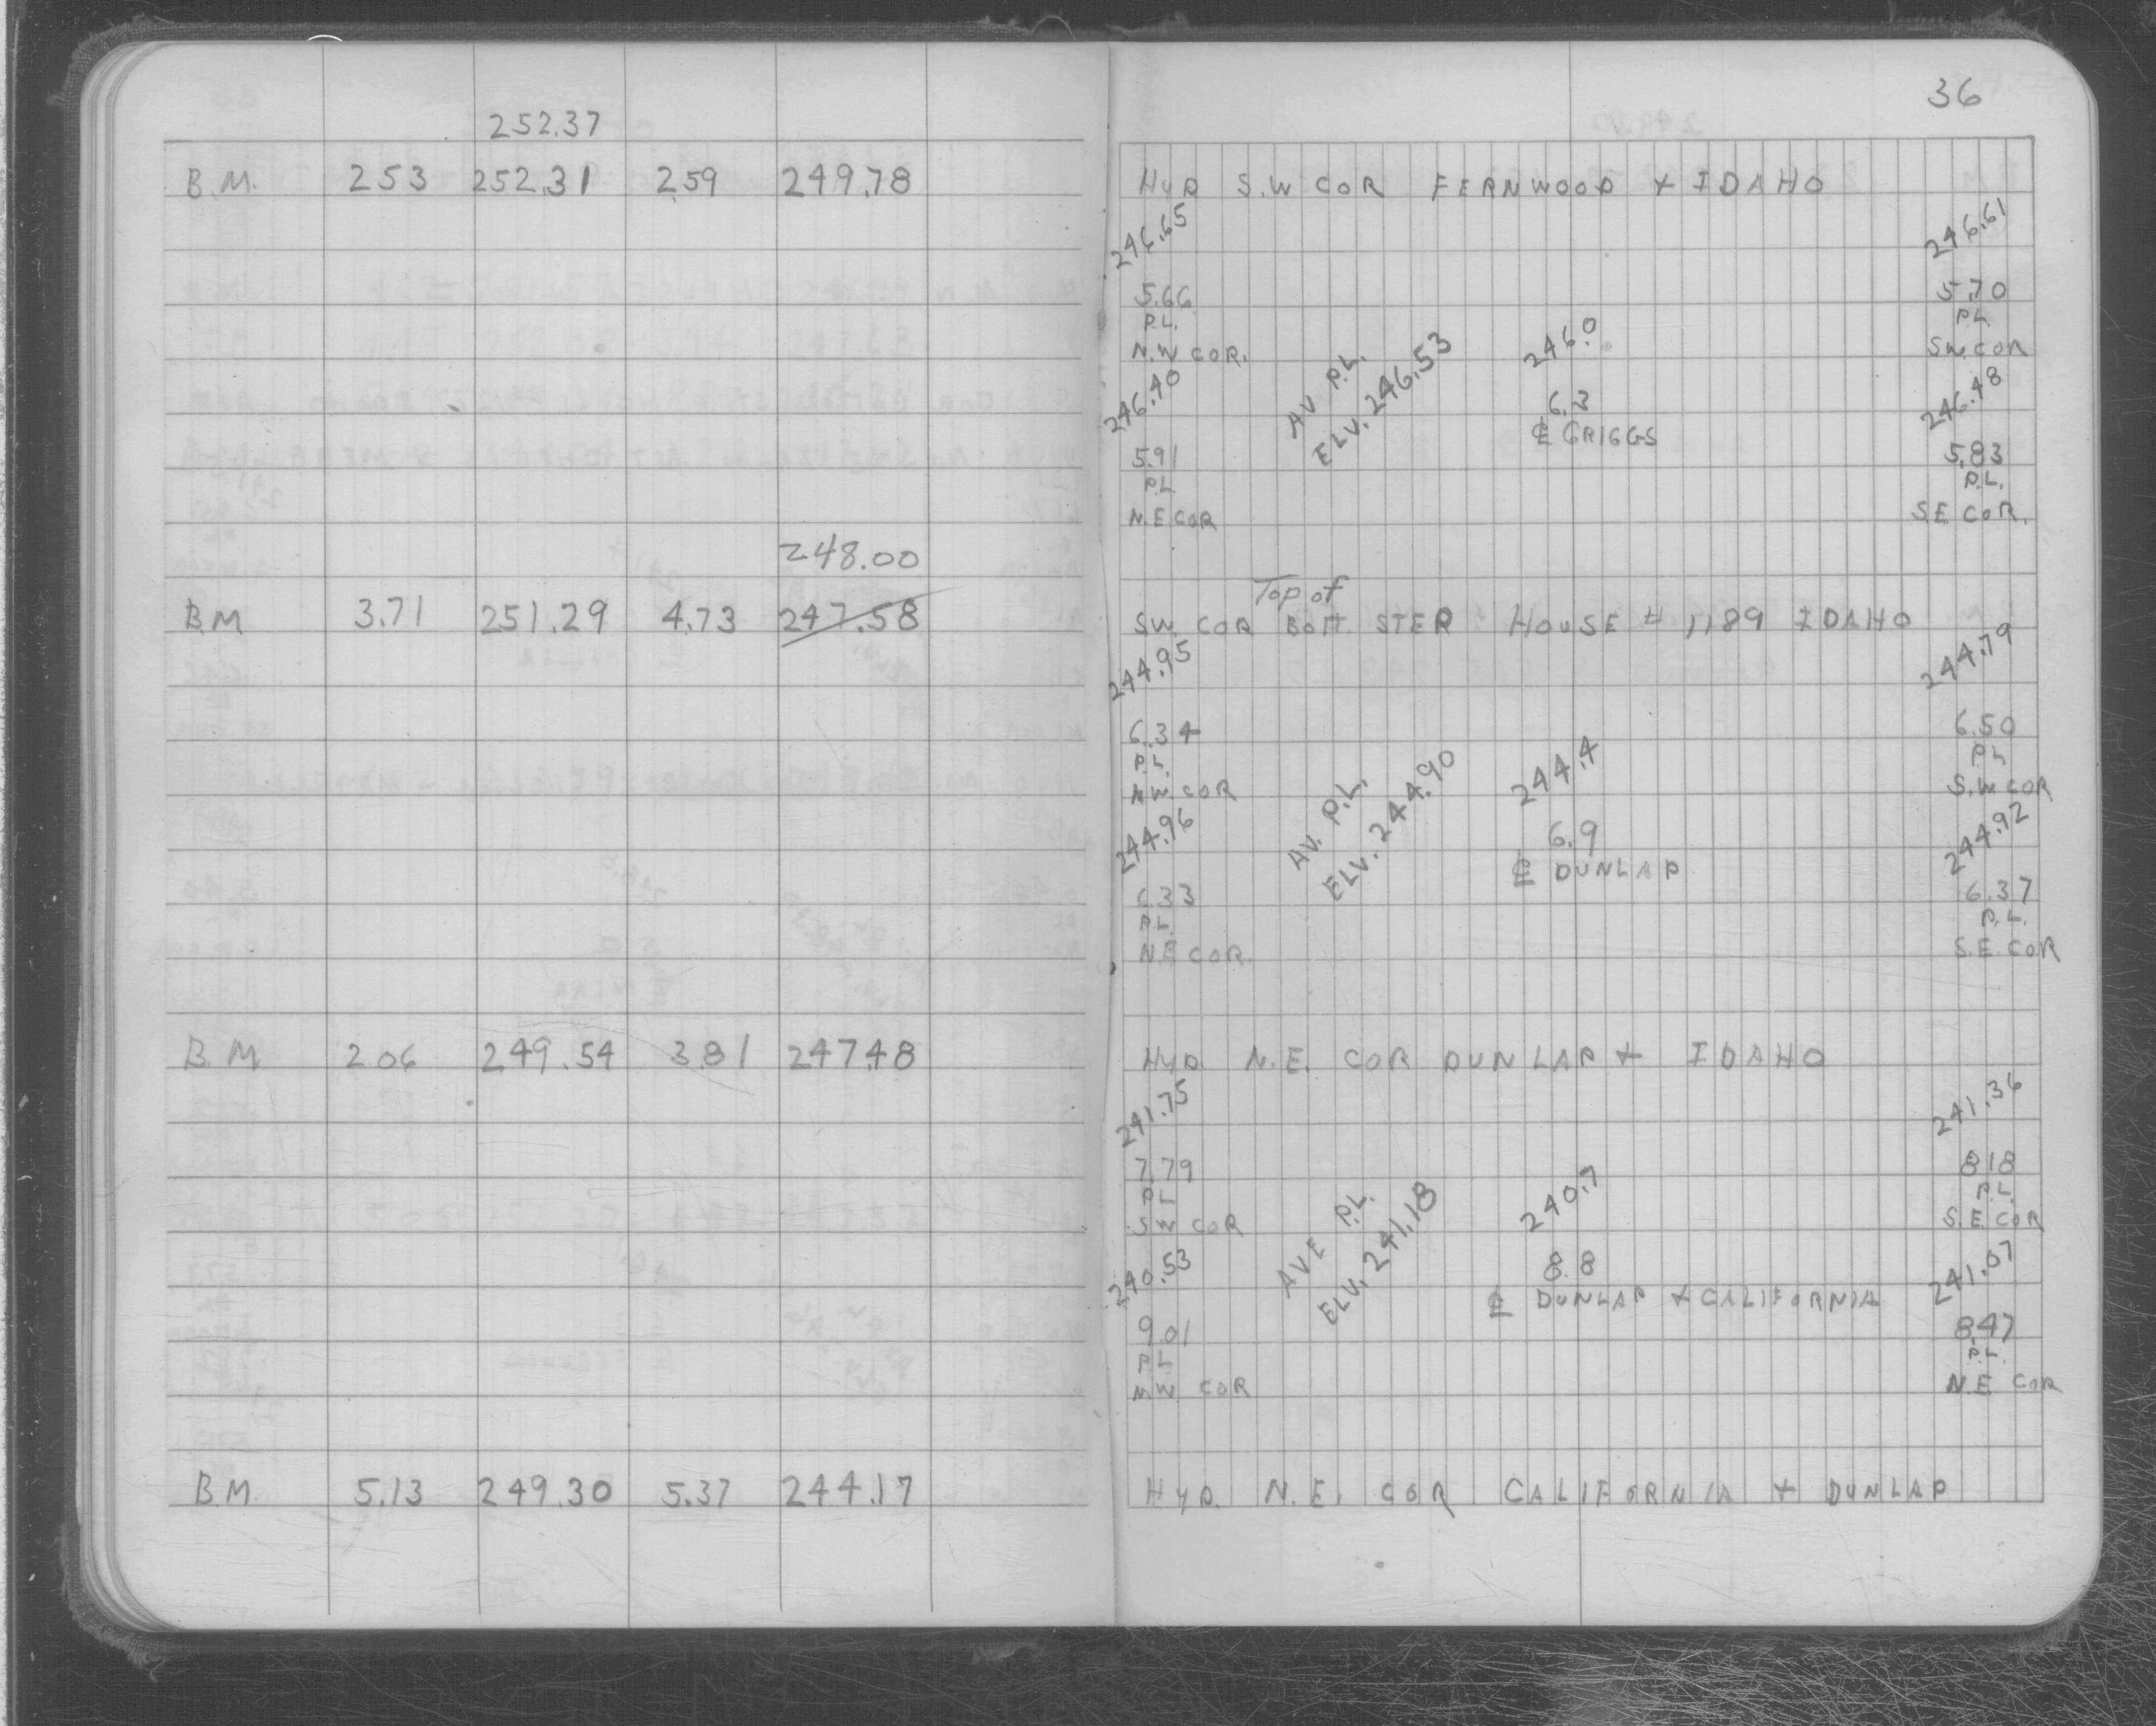 36
252.37
B.M. 2.53 252.31 2.59 249.78
HYD S.W COR FERNWOOD + IDAHO
246.65 246.61
5.66 5.70
P.L. P.L
N.W COR. 246.0 S.W. COR
246.40 AV P.L. 246.48
ELV. 246.53 6.3
℄ GRIGGS
5.91 5.83
P.L. P.L.
N.E COR S.E COR.
248.00
Top of
B.M 3.71 251.29 4.73 247.58
S.W. COR BOTT STEP HOUSE # 1189 IDAHO
244.95 244.79
6.34 6.50
P.L. P.L
N.W. COR 244.4 S.W COR
244.96 AV. P.L. 244.92
ELV. 244.90 6.9
℄ DUNLAP
6.33 6.37
P.L. P.L.
N.E COR. S.E. COR
B.M 2.06 249.54 3.81 247.48
HYD. N.E. COR DUNLAP + IDAHO
241.75 241.36
7.79 8.18
P.L P.L.
S.W COR 240.7 S.E COR
240.53 AVE P.L. 241.07
ELV. 241.18 8.8
℄ DUNLAP + CALIFORNIA
9.01 8.47
P.L P.L.
N.W. COR N.E COR
B.M. 5.13 249.30 5.37 244.17
HYD. N.E. COR CALIFORNIA + DUNLAP